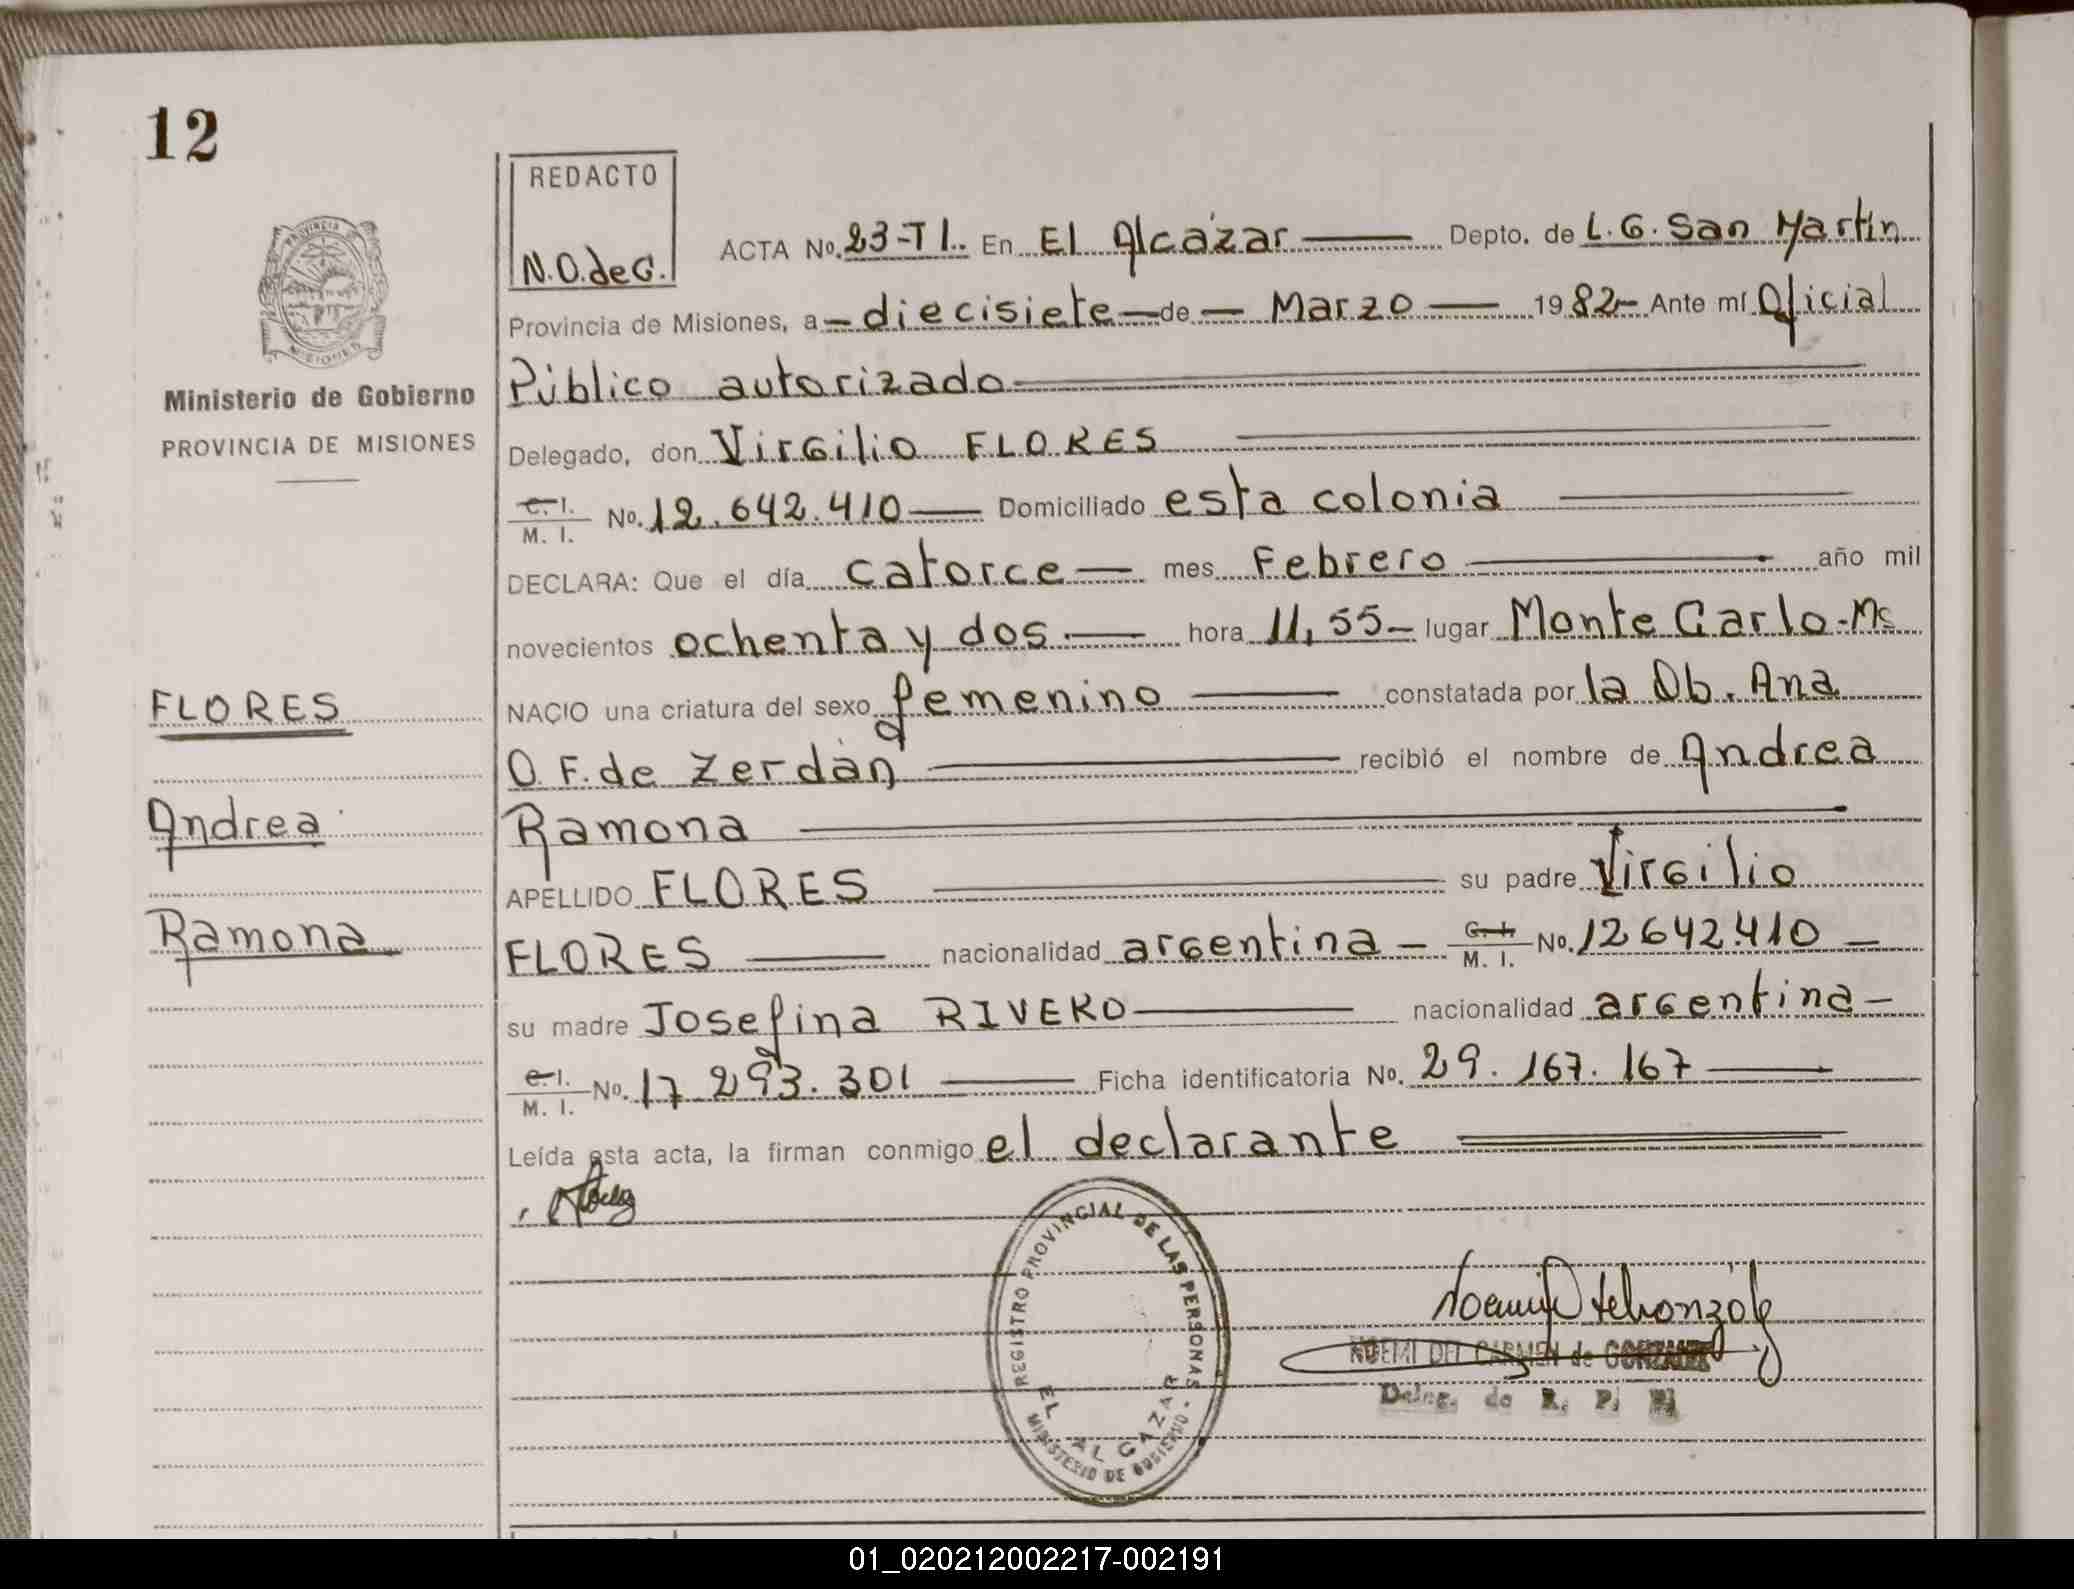 12
REDACTO
N.O.deG.
ACTA No. 23-TI. En El Alcázar Depto. de L.G. San Martín
Provincia de Misiones, a diecisiete de Marzo 1982 Ante mí Oficial
Público autorizado
Delegado, don Virgilio FLORES
C. I.
M. I. No. 12.642.410 Domiciliado esta colonia
DECLARA: Que el día catorce mes Febrero año mil
novecientos ochenta y dos hora 11,55 lugar Monte Carlo-Ms
NACIO una criatura del sexo femenino constatada por la Ob. Ana
O.F. de Zerdán recibió el nombre de Andrea
Ramona
APELLIDO FLORES su padre Virgilio
FLORES nacionalidad argentina C. I.
M. I. No. 12642.410
su madre Josefina RIVERO nacionalidad argentina
C. I.
M. I. No. 17.293.301 Ficha identificatoria No. 29.167.167
Leída esta acta, la firman conmigo el declarante
PROVINCIA
MISIONES
Ministerio de Gobierno
PROVINCIA DE MISIONES
FLORES
Andrea
Ramona
REGISTRO PROVINCIAL DE LAS PERSONAS
EL ALCAZAR
MINISTERIO DE GOBIERNO
NOEMI DEL CARMEN de GONZALEZ
Deleg. de R. P. P.
01_020212002217-002191